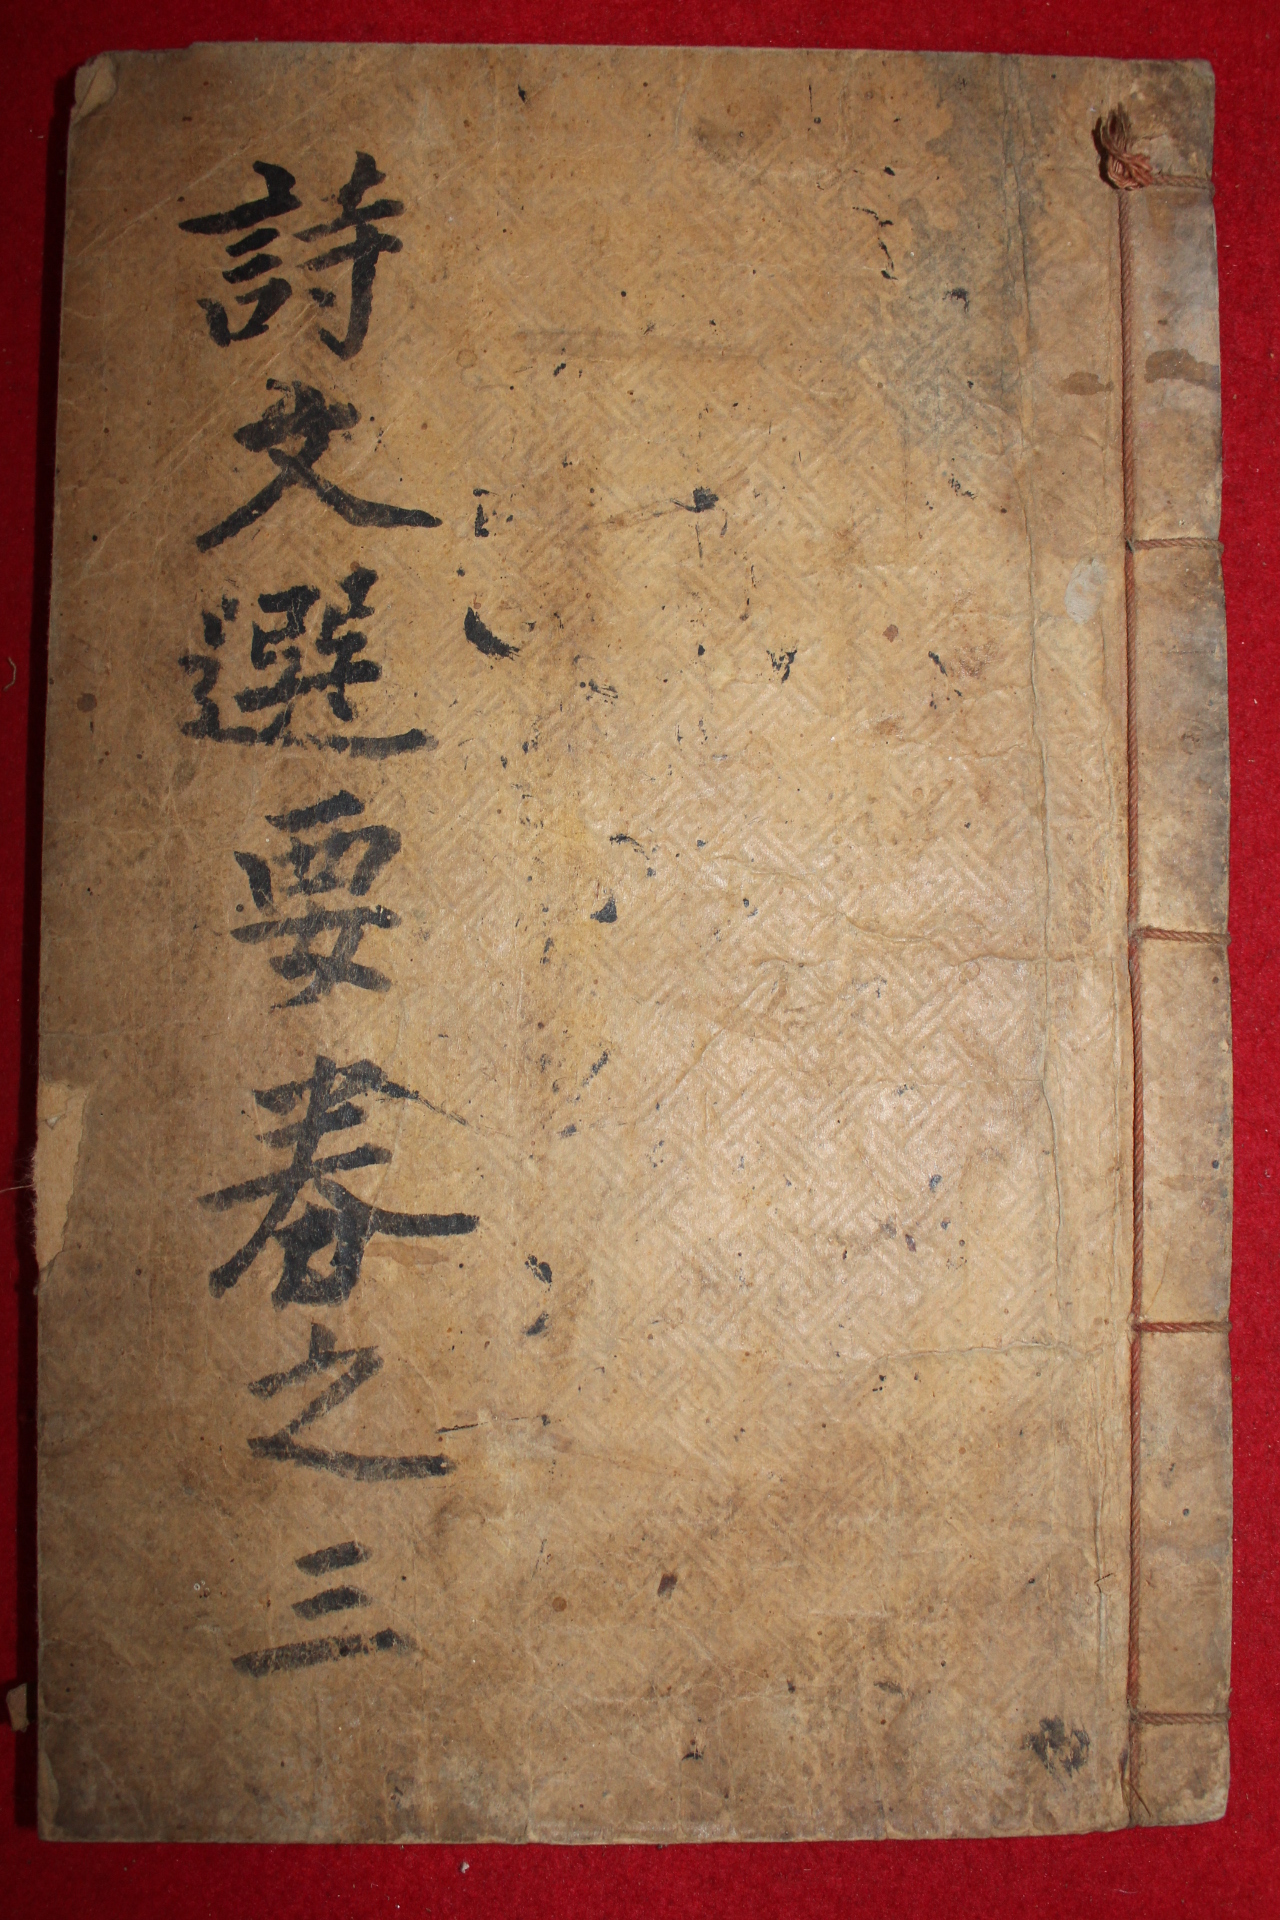 詩文選要卷之三